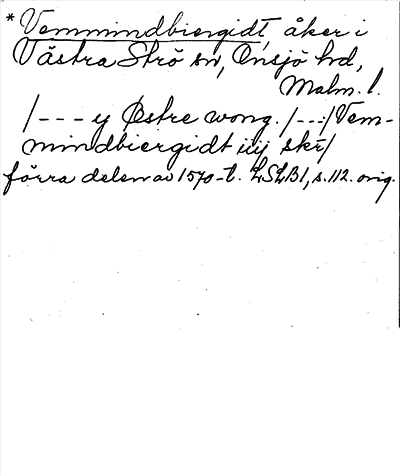 * Vemmindbiergidt, åker i
Västra Strö sn, Onsjö hd,
Malm. l.
/--- y Østre wong. /---/ Vem-
mindbiergidt iiij skr/
förra delen av 1570-t. LSLB1, s. 112. orig.